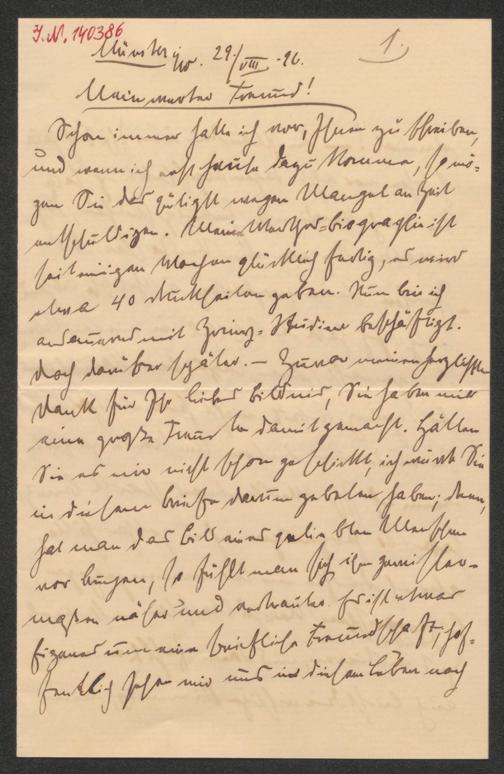 J.N. 140386
1.
Münster i/W. 29./VIII.-96.
Mein werter Freund!
Schon immer hatte ich vor, Ihnen zu schreiben,
und wenn ich erst heute dazu komme, so mö-
gen Sie das gütigst wegen Mangel an Zeit
entschuldigen. Meine -biographie ist
seit einigen Wochen glücklich fertig, es wird
etwa 40 Druckseiten geben. Nun bin ich
andauernd mit Studien beschäftigt.
Doch darüber später. – Zuvor meinen herzlichsten
Dank für Ihr liebes Bildnis, Sie haben mir
eine große Freude damit gemacht. Hätten
Sie es mir nicht schon geschickt, ich würde Sie
in diesem Briefe darum gebeten haben; denn,
hat man das Bild eines geliebten Menschen
vor Augen, so fühlt man sich ihm gewisser-
maßen näher und vertrauter. Es ist etwas
Eigenes um eine briefliche Freundschaft, hof-
fentlich sehen wir uns in diesem Leben noch